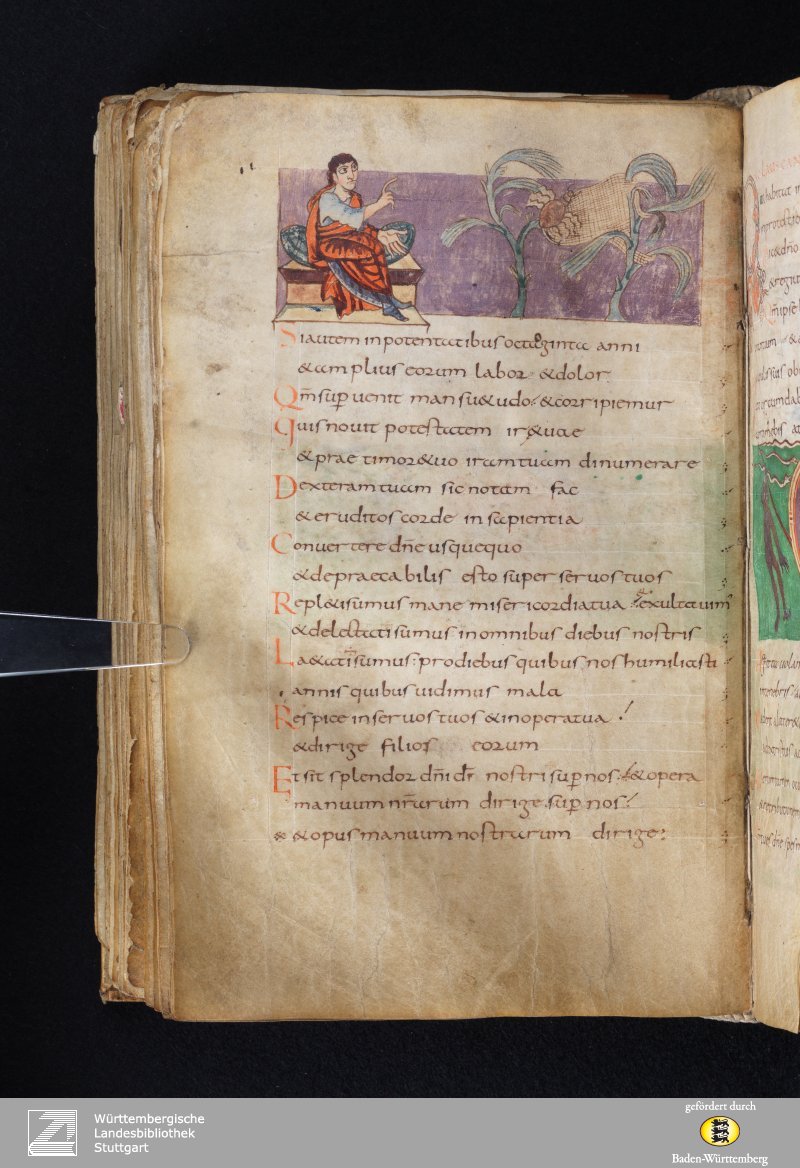 Si autem in potentatibus octoginta anni
& amplius eorum labor & dolor
Qm̄ sup̄ uenit mansu&udo & corripiemur
Quis nouit potestatem irae tuae
& prae timore tuo iram tuam dinumerare
Dexteram tuam sic notam fac
& eruditos corde in sapientia
Conuertere dn̄e usquequo
& depraecabilis esto super seruos tuos
Repl&i sumus mane misericordia tua & exultauim
& delectati sumus in omnibus diebus nostris
La&ati sumus pro diebus quibus nos humiliasti
annis quibus uidimus mala
Respice in seruos tuos & in opera tua
& dirige filios eorum
Et sit splendor dn̄i dī nostri sup̄ nos & opera
manuum nr̄arum dirige sup̄ nos
& opus manuum nostrarum dirige
Württembergische
Landesbibliothek
Stuttgart
gefördert durch
Baden-Württemberg